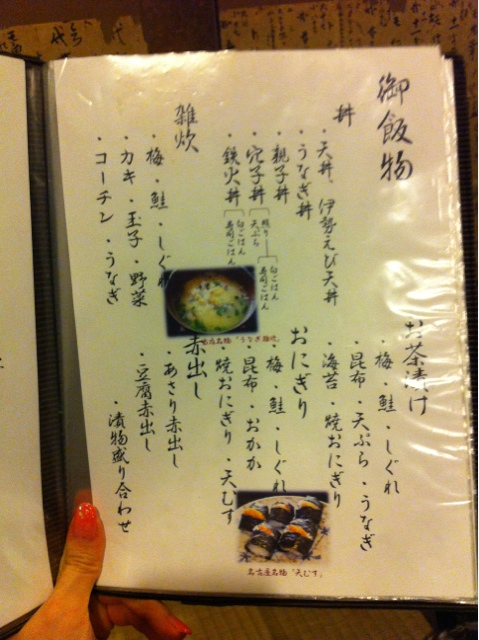 御飯物
丼
・天丼、伊勢えび天丼
・うなぎ丼
・親子丼
・穴子丼
照り
天ぷら
白ごはん
寿司ごはん
・鉄火丼
白ごはん
寿司ごはん
雑炊
・梅・鮭・しぐれ
・カキ・玉子・野菜
・コーチン・うなぎ
お茶漬け
・梅・鮭・しぐれ
・昆布・天ぷら・うなぎ
・海苔・焼おにぎり
おにぎり
・梅・鮭・しぐれ
・昆布・おかか
・焼おにぎり・天むす
赤出し
・あさり赤出し
・豆腐赤出し
・漬物盛り合わせ
名古屋名物「天むす」